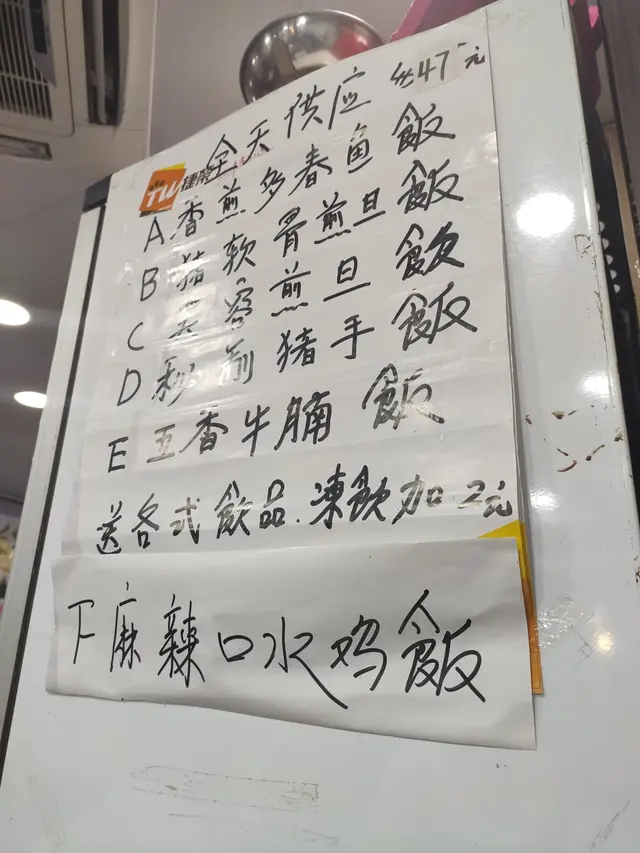 全天供应 47元
TW 捷榮
A 香煎多春鱼飯
B 猪软骨煎旦飯
C 芙容煎旦飯
D 秘制猪手飯
E 五香牛腩飯
送各式飲品.凍飲加2元
F麻辣口水鸡飯